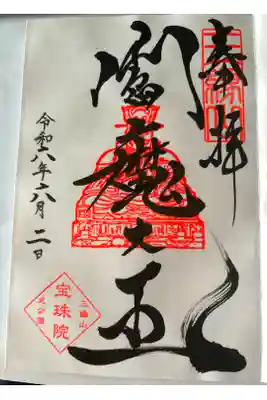 奉拝
閻魔大王
令和六年八月二日
三縁山
宝珠院
芝公園